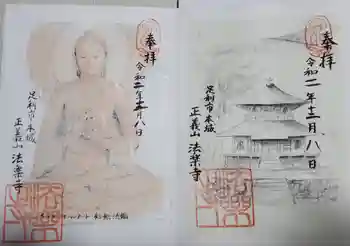 奉拝
令和二年十二月八日
足利市本城
正義山 法楽寺
奉拝
令和二年十二月八日
足利市本城
正義山 法楽寺